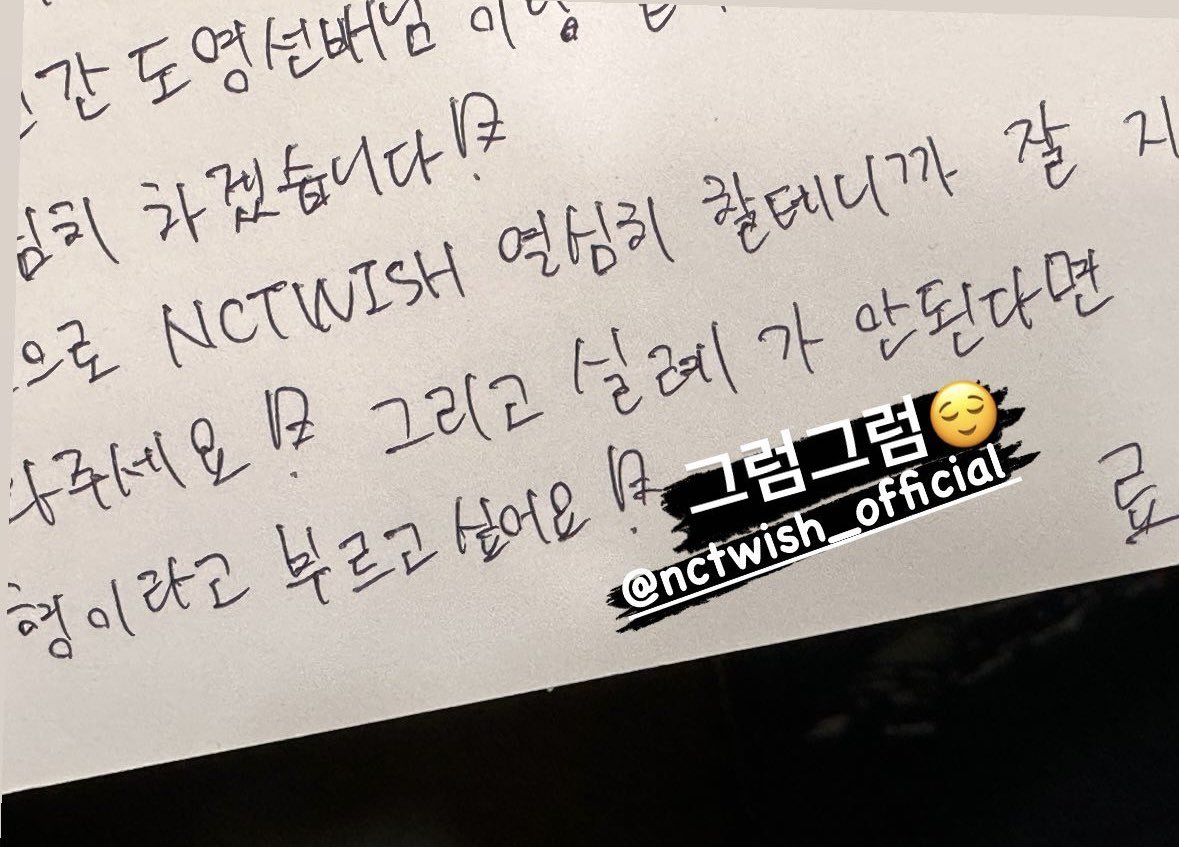 간 도영선배님
하겠습니다!!
으로 NCTWISH 열심히 할테니까 잘 지
주세요!! 그리고 실례가 안된다면
형이라고 부르고 싶어요!!
료
그럼그럼😌
@nctwish_official